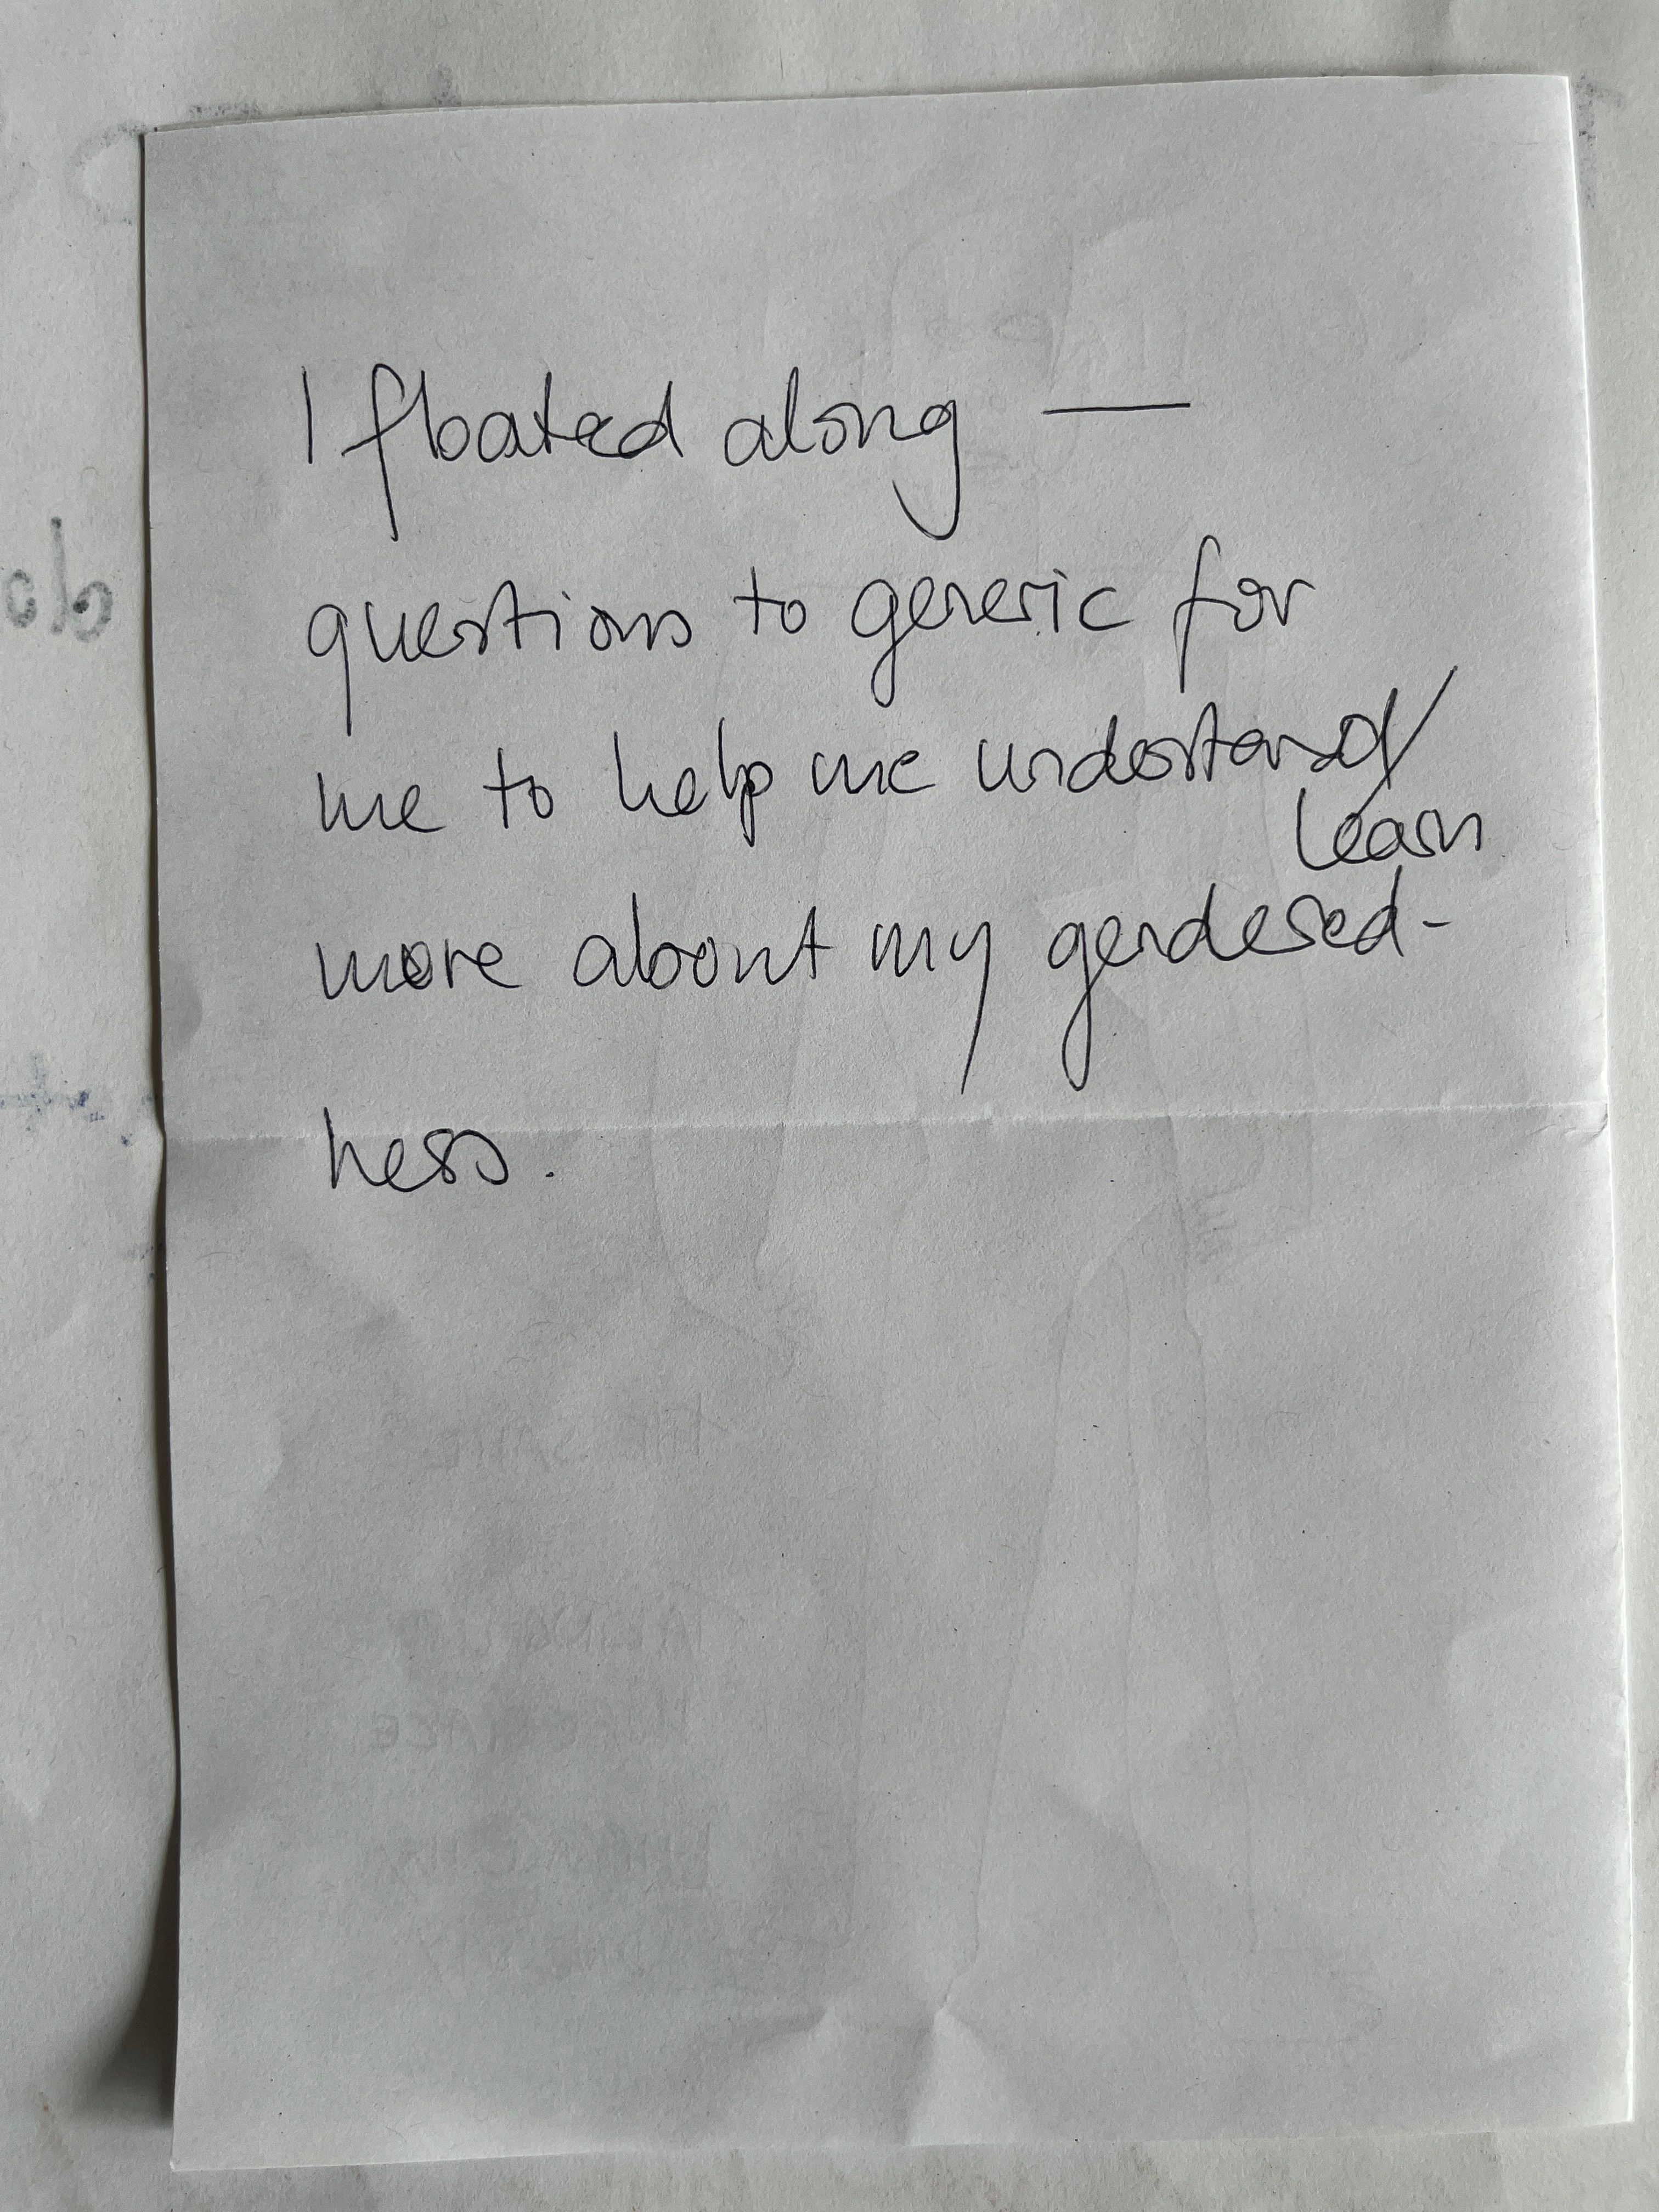 I floated along —
questions to generic for
me to help me understand/
learn
more about my gendered-
ness.